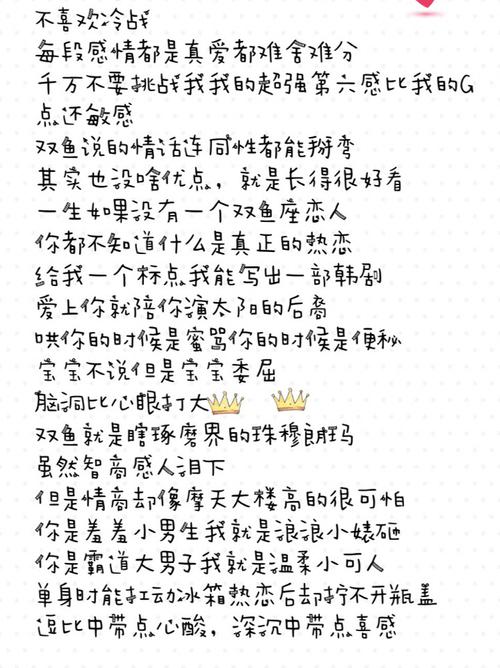 不喜欢冷战
每段感情都是真爱都难舍难分
千万不要挑战我我的超强第六感比我的G
点还敏感
双鱼说的情话连同性都能掰弯
其实也没啥优点，就是长得很好看
一生如果没有一个双鱼座恋人
你都不知道什么是真正的热恋
给我一个标点我能写出一部韩剧
爱上你就陪你演太阳的后裔
哄你的时候是蜜骂你的时候是便秘
宝宝不说但是宝宝委屈
脑洞比心眼打大
双鱼就是瞎琢磨界的珠穆朗玛
虽然智商感人泪下
但是情商却像摩天大楼高的很可怕
你是羞羞小男生我就是浪浪小婊砸
你是霸道大男子我就是温柔小可人
单身时能扛动冰箱热恋后却拧不开瓶盖
逗比中带点心酸，深沉中带点喜感